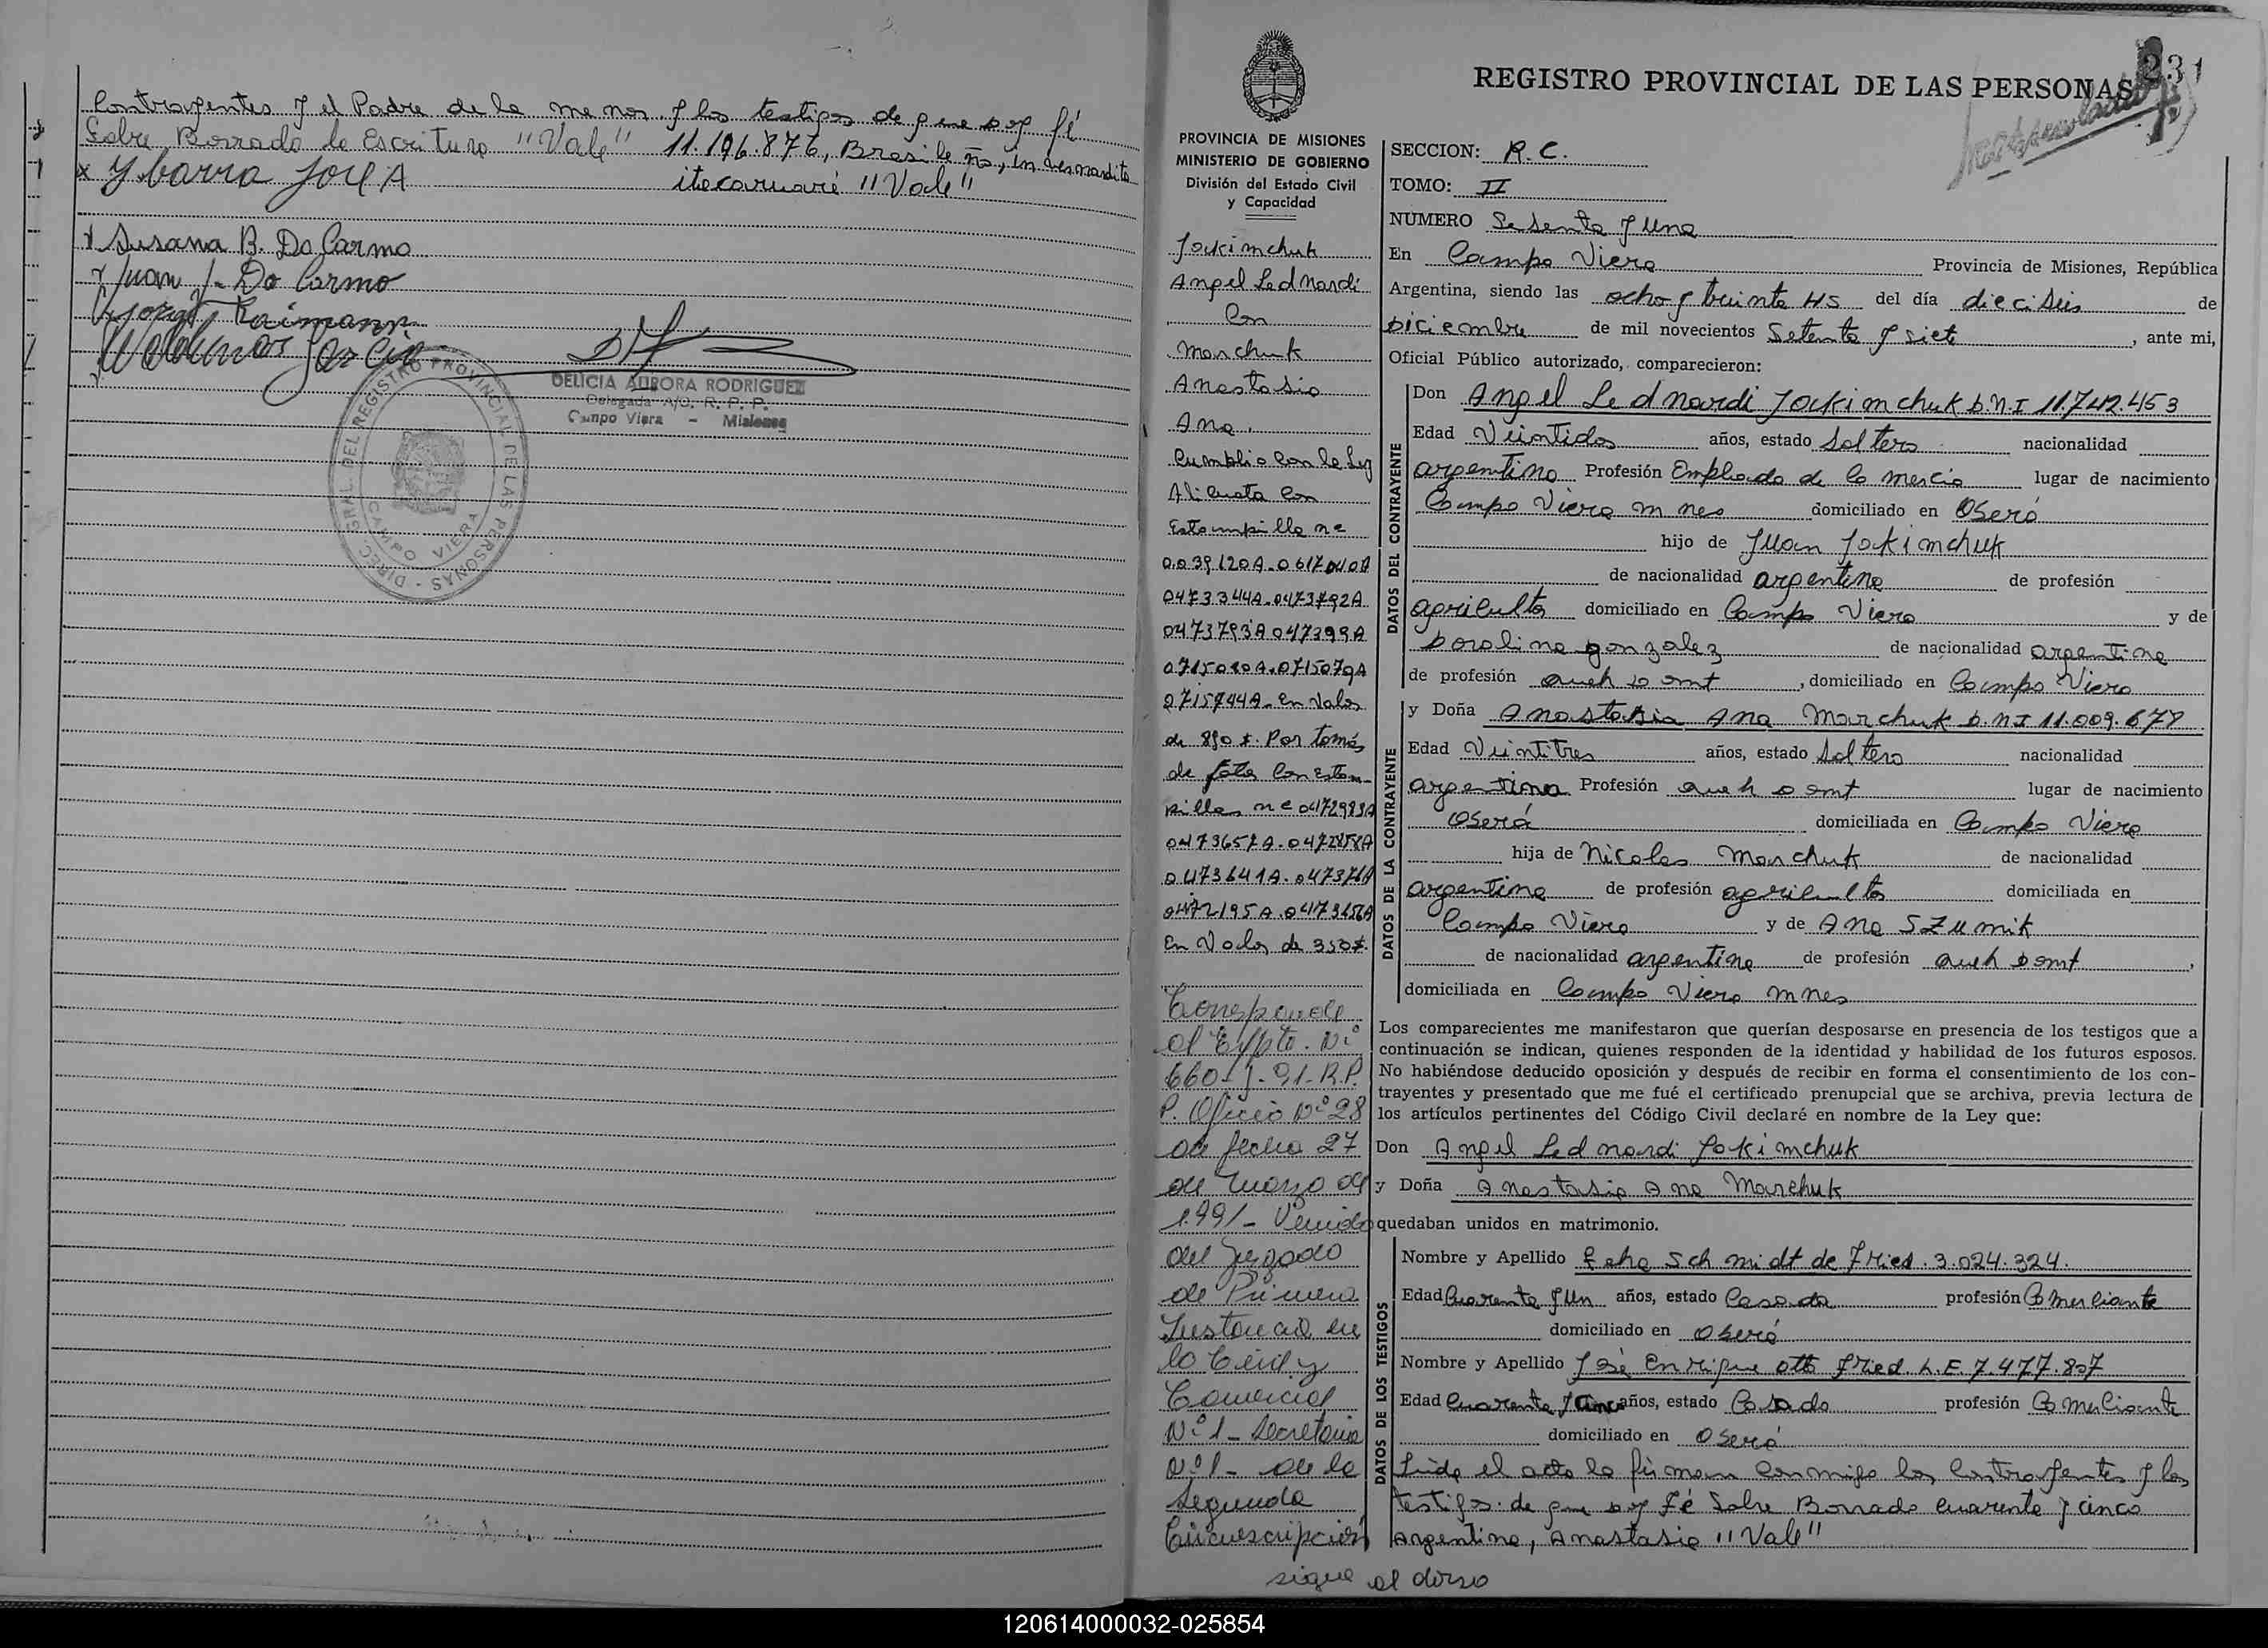 Contrayentes y el Padre de la menor y los testigos de que doy fé
Sobre Borrado de Escritura "Vale" 11.196.876, Brasileño, in
itacaruaré "Vale"
x Ybarra José A
x Susana B. Do Carmo
x Juan J. Do Carmo
DELICIA AURORA RODRIGUEZ
Delegada A/C. R. P. P.
Campo Viera - Misiones
DIREC. GRAL. DEL REGISTRO PROVINCIAL DE LAS PERSONAS -
CAMPO VIERA
231
REGISTRO PROVINCIAL DE LAS PERSONAS
PROVINCIA DE MISIONES
MINISTERIO DE GOBIERNO
División del Estado Civil
y Capacidad
Jockimchuk
Angel Lednardi
Con
Marchuk
Anastasia
Ana.
Cumplio con la Ley
Alicuota con
Estampilla nº
0473344A-0473792A
de 890 $. Por tomás
de foto con Estam-
pillas nº 0472983A
0473657A-0472858A
En Valor de 350 $.
Corresponde
al Expte. Nº
660-J-91-R.P.
P. Oficio Nº 28
de fecha 27
de marzo de
1991- Venido
del Juzgado
de Primera
Instancia en
lo Civil y
Comercial
Nº 1- Secretaria
Nº 1- de la
Segunda
Circunscripción
sigue al dorso
SECCION: R.C.
TOMO: II
NUMERO Sesenta y Una
En Campo Viera Provincia de Misiones, República
Argentina, siendo las ocho y treinta HS del día dieciseis de
Diciembre de mil novecientos Setenta y siete, ante mi,
Oficial Público autorizado, comparecieron:
DATOS DEL CONTRAYENTE
Don Angel Lednardi Jockimchuk D.N.I 11.742.453
Edad Veintidos años, estado Soltero nacionalidad
argentino Profesión Empleado de Comercio lugar de nacimiento
Campo Viera Mnes domiciliado en Oberá
hijo de Juan Jokimchuk
de nacionalidad argentina de profesión
agricultor domiciliado en Campo Viera y de
Doralina gonzalez de nacionalidad argentina
de profesión queh domt, domiciliado en Campo Viera
DATOS DE LA CONTRAYENTE
y Doña Anastasia Ana Marchuk D.N.I 11.009.678
Edad Veintitres años, estado Soltera nacionalidad
argentina Profesión queh domt lugar de nacimiento
Oberá domiciliada en Campo Viera
hija de Nicolas Marchuk de nacionalidad
argentina de profesión agricultor domiciliada en
Campo Viera y de Ana Szumik
de nacionalidad argentina de profesión queh domt,
domiciliada en Campo Viera Mnes
Los comparecientes me manifestaron que querían desposarse en presencia de los testigos que a
continuación se indican, quienes responden de la identidad y habilidad de los futuros esposos.
No habiéndose deducido oposición y después de recibir en forma el consentimiento de los con-
trayentes y presentado que me fué el certificado prenupcial que se archiva, previa lectura de
los artículos pertinentes del Código Civil declaré en nombre de la Ley que:
Don Angel Lednardi Jokimchuk
y Doña Anastasia Ana Marchuk
quedaban unidos en matrimonio.
DATOS DE LOS TESTIGOS
Nombre y Apellido Schmidt de Fried. 3.024.324.
Edad Cuarenta y Un años, estado Casada profesión Comerciante
domiciliado en Oberá
Nombre y Apellido José Enrique Otto Fried. L.E. 7.477.807
Edad Cuarenta y Cinco años, estado Casado profesión Comerciante
domiciliado en Oberá
Leida el acta la firman conmigo los Contrayentes y los
testigos. de que doy Fé Sobre Borrado cuarenta y cinco
Argentina, Anastasia "Vale"
120614000032-025854